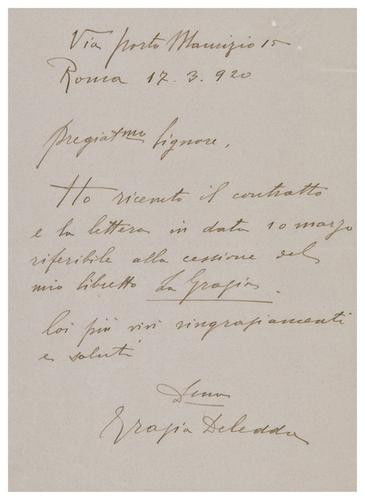 Via Porto Maurizio 15
Roma 17. 3. 920
Pregiatmo Signore,
Ho ricevuto il contratto
e la lettera in data 10 marzo
riferibile alla cessione del
mio libretto La Grazia.
Coi più vivi ringraziamenti
e saluti
Grazia Deledda